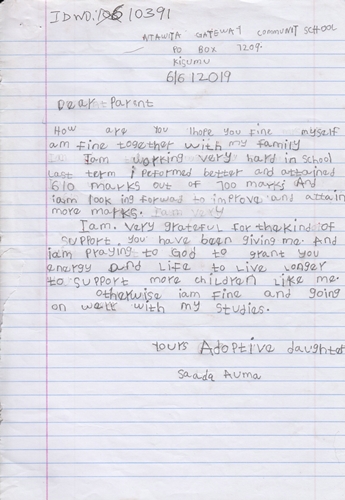 ID NO: 10391
NYAWITA GATEWAY COMMUNITY SCHOOL
PO BOX 7209.
KISUMU
6/6/2019
Dear Parent
How are you I hope you fine myself
am fine together with my family
Iam working very hard in school
last term i peformed better and attained
610 marks out of 700 marks And
iam looking forwad to improve and attain
more marks.
Iam. very grateful for the kind of
support. you have been giving me. And
iam praying to God to grant you
energy and Life to Live Longer
to support more children Like me.
otherwise iam fine and going
on well with my studies.
yours Adoptive daughter
Saada Auma